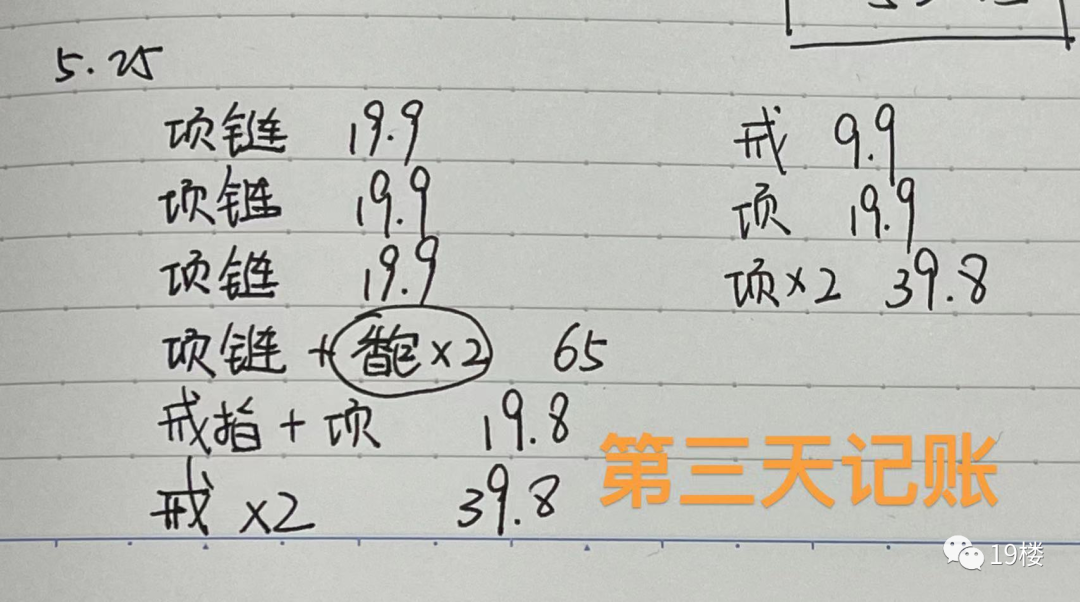 5.25
项链 19.9
项链 19.9
项链 19.9
项链 + 香包×2 65
戒指 + 项 19.8
戒 ×2 39.8
戒 9.9
项 19.9
项×2 39.8
第三天记账
19楼